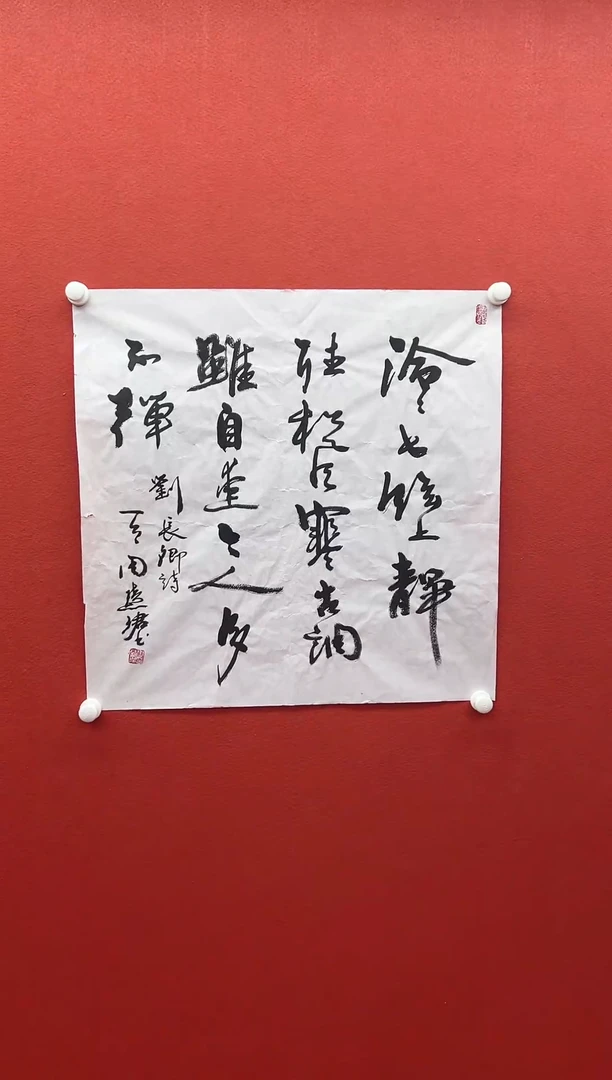 泠々七絃上靜
聽松風寒古調
雖自愛今人多
不彈
劉長卿詩